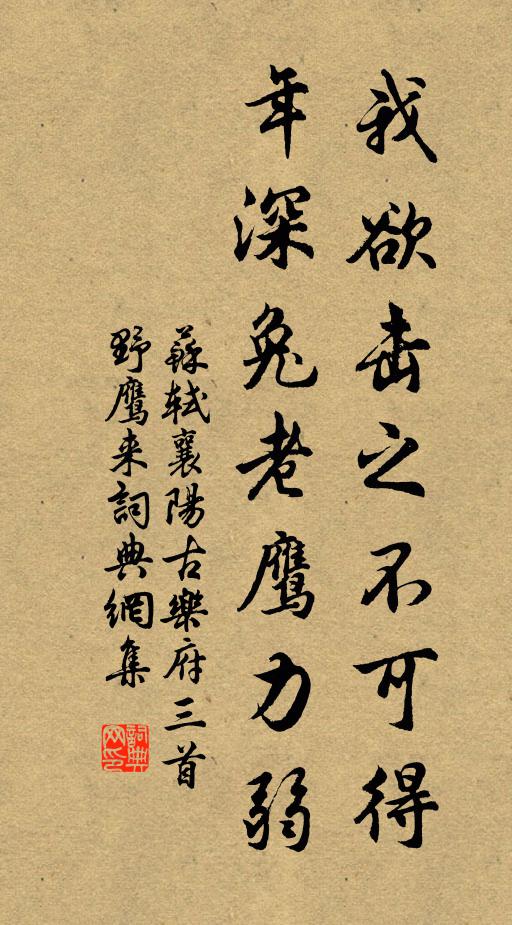 我欲击之不可得
年深兔老鹰力弱
蘇軾襄陽古樂府三首
野鹰来詞典網集
詞典网印